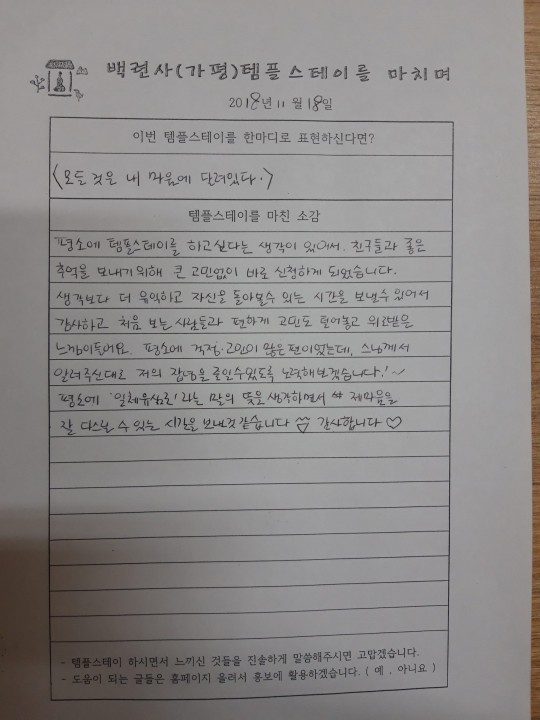 백련사(가평)템플스테이를 마치며
2018년 11월 18일
이번 템플스테이를 한마디로 표현하신다면?
<모든 것은 내 마음에 달려있다.>
템플스테이를 마친 소감
평소에 템플스테이를 하고싶다는 생각이 있어서. 친구들과 좋은
추억을 보내기위해 큰 고민없이 바로 신청하게 되었습니다.
생각보다 더 유익하고 자신을 돌아볼수 있는 시간을 보낼수 있어서
감사하고 처음 보는 사람들과 편하게 고민도 털어놓고 위로받은
느낌이들어요. 평소에 걱정·고민이 많은편이었는데, 스님께서
알려주신대로 저의 잡념을 줄일수있도록 노력해보겠습니다.!~
평소에 '일체유심조'라는 말의 뜻을 생각하면서 제마음을
잘 다스릴 수 있는 시간을 보낸것같습니다 감사합니다♡
- 템플스테이 하시면서 느끼신 것들을 진솔하게 말씀해주시면 고맙겠습니다.
- 도움이 되는 글들은 홈페이지 올려서 홍보에 활용하겠습니다. ( 예 , 아니요 )